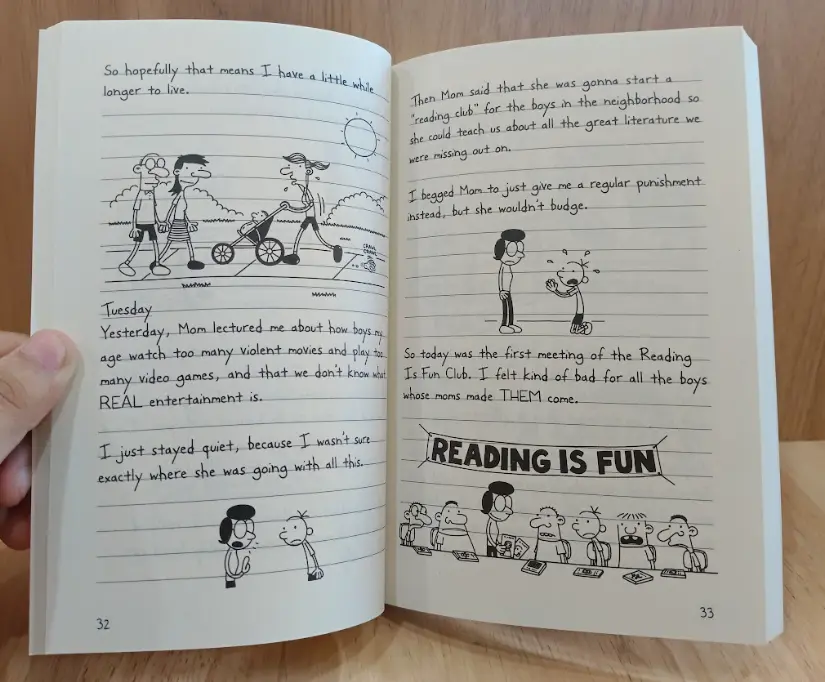 So hopefully that means I have a little while
longer to live.
Tuesday
Yesterday, Mom lectured me about how boys my
age watch too many violent movies and play too
many video games, and that we don't know what
REAL entertainment is.
I just stayed quiet, because I wasn't sure
exactly where she was going with all this.
32
Then Mom said that she was gonna start a
"reading club" for the boys in the neighborhood so
she could teach us about all the great literature we
were missing out on.
I begged Mom to just give me a regular punishment
instead, but she wouldn't budge.
So today was the first meeting of the Reading
Is Fun Club. I felt kind of bad for all the boys
whose moms made THEM come.
READING IS FUN
33